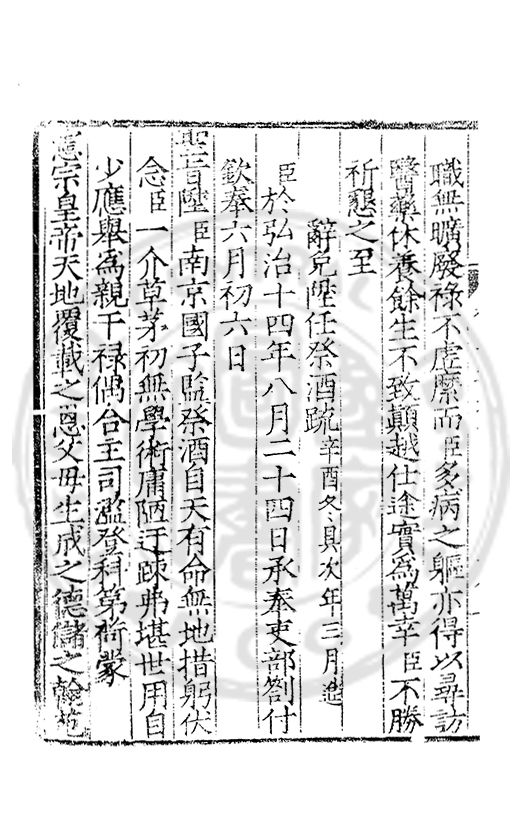 職無曠廢祿不虛縻而臣多病之軀亦得以尋訪
醫藥休養餘生不致顛越仕途實為萬幸臣不勝
祈懇之至
辭免陞任祭酒疏辛酉冬具次年三月進
臣於弘治十四年八月二十四日承奉吏部劄付
欽奉六月初六日
聖旨陞臣南京國子監祭酒自天有命無地措躬伏
念臣一介草茅初無學術庸陋迂踈弗堪世用自
少應舉為親干祿偶合主司濫登科第荷蒙
憲宗皇帝天地覆載之恩父母生成之德儲之翰苑